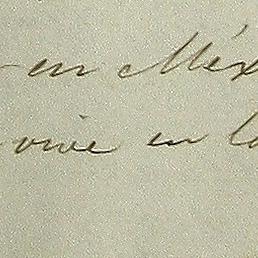 en Méx
vive en la